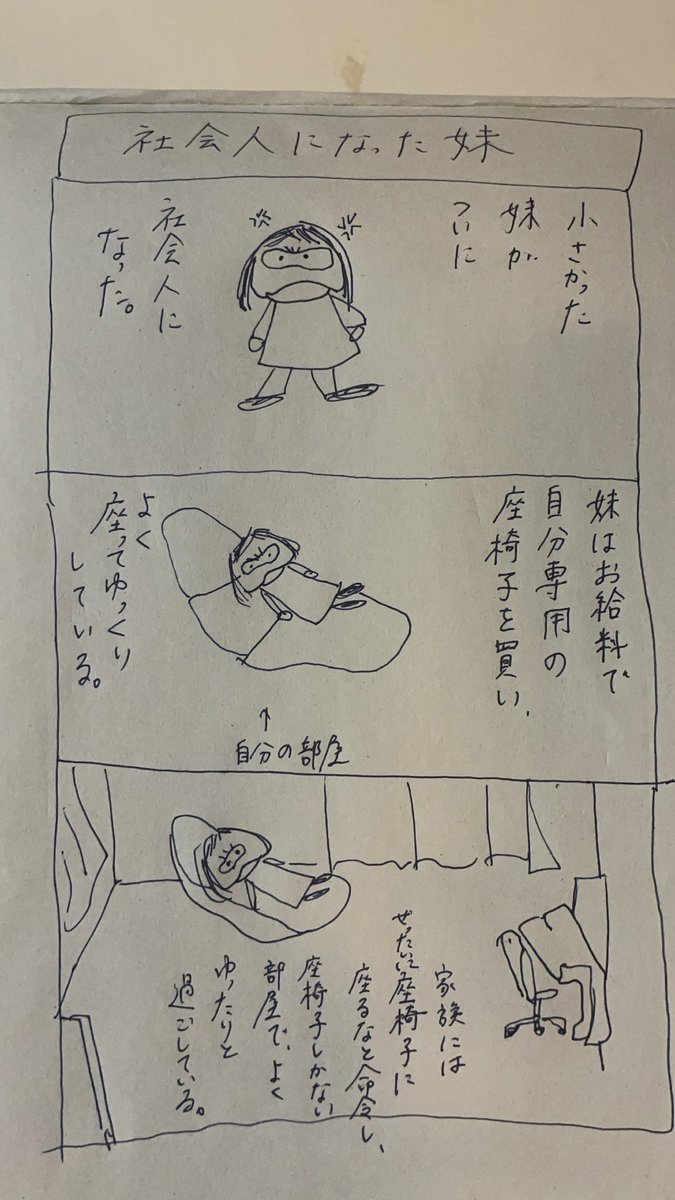 社会人になった妹
小さかった
妹が
ついに
社会人に
なった。
妹はお給料で
自分専用の
座椅子を買い、
よく
座ってゆっくり
している。
↑
自分の部屋
家族には
ぜったいに座椅子に
座るなと命令し、
座椅子しかない
部屋で、よく
ゆったりと
過ごしている。